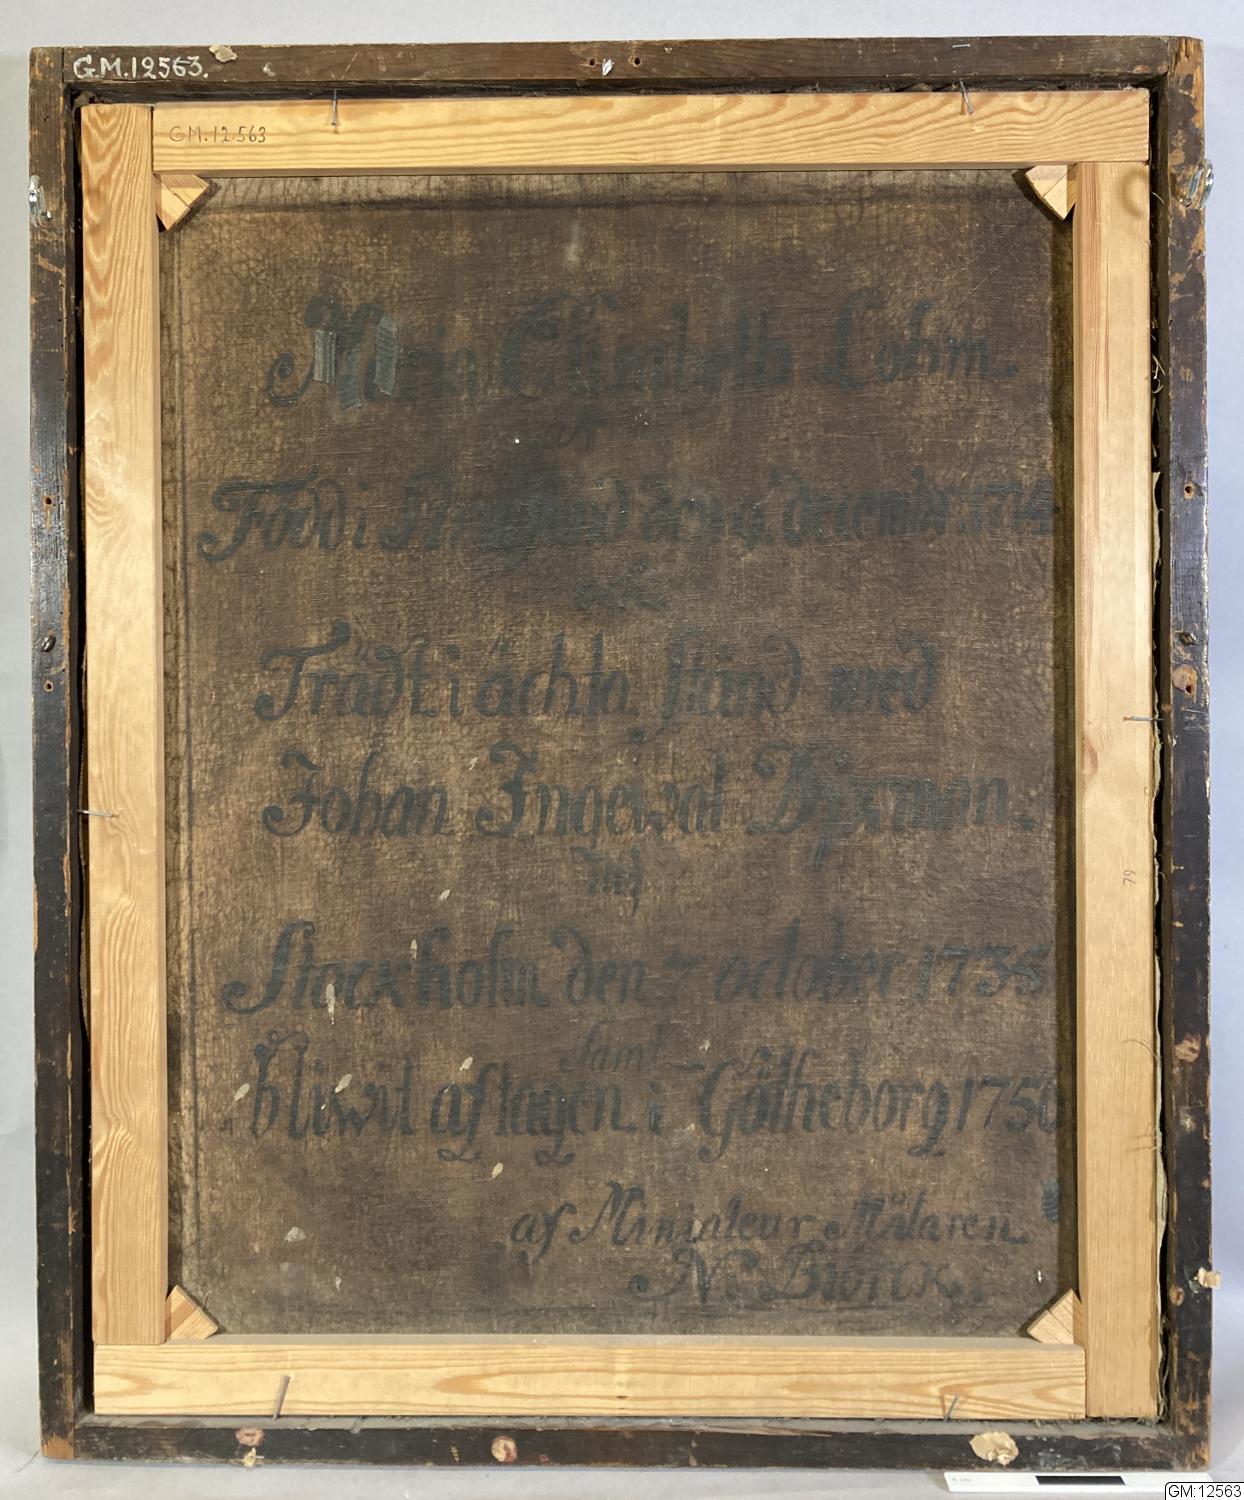 G.M.12563.
GM.12563
Maria Elisabeth Lohm.
är
Född i den 4 december 1714
och
Trädt i ächta stånd med
Johan Ingewal
uti
Stockholm den 7 october 1735
Samt
bliwit aftagen i Götheborg 1750
af Miniateur Målaren
N. Biörck.
79
GM:12563